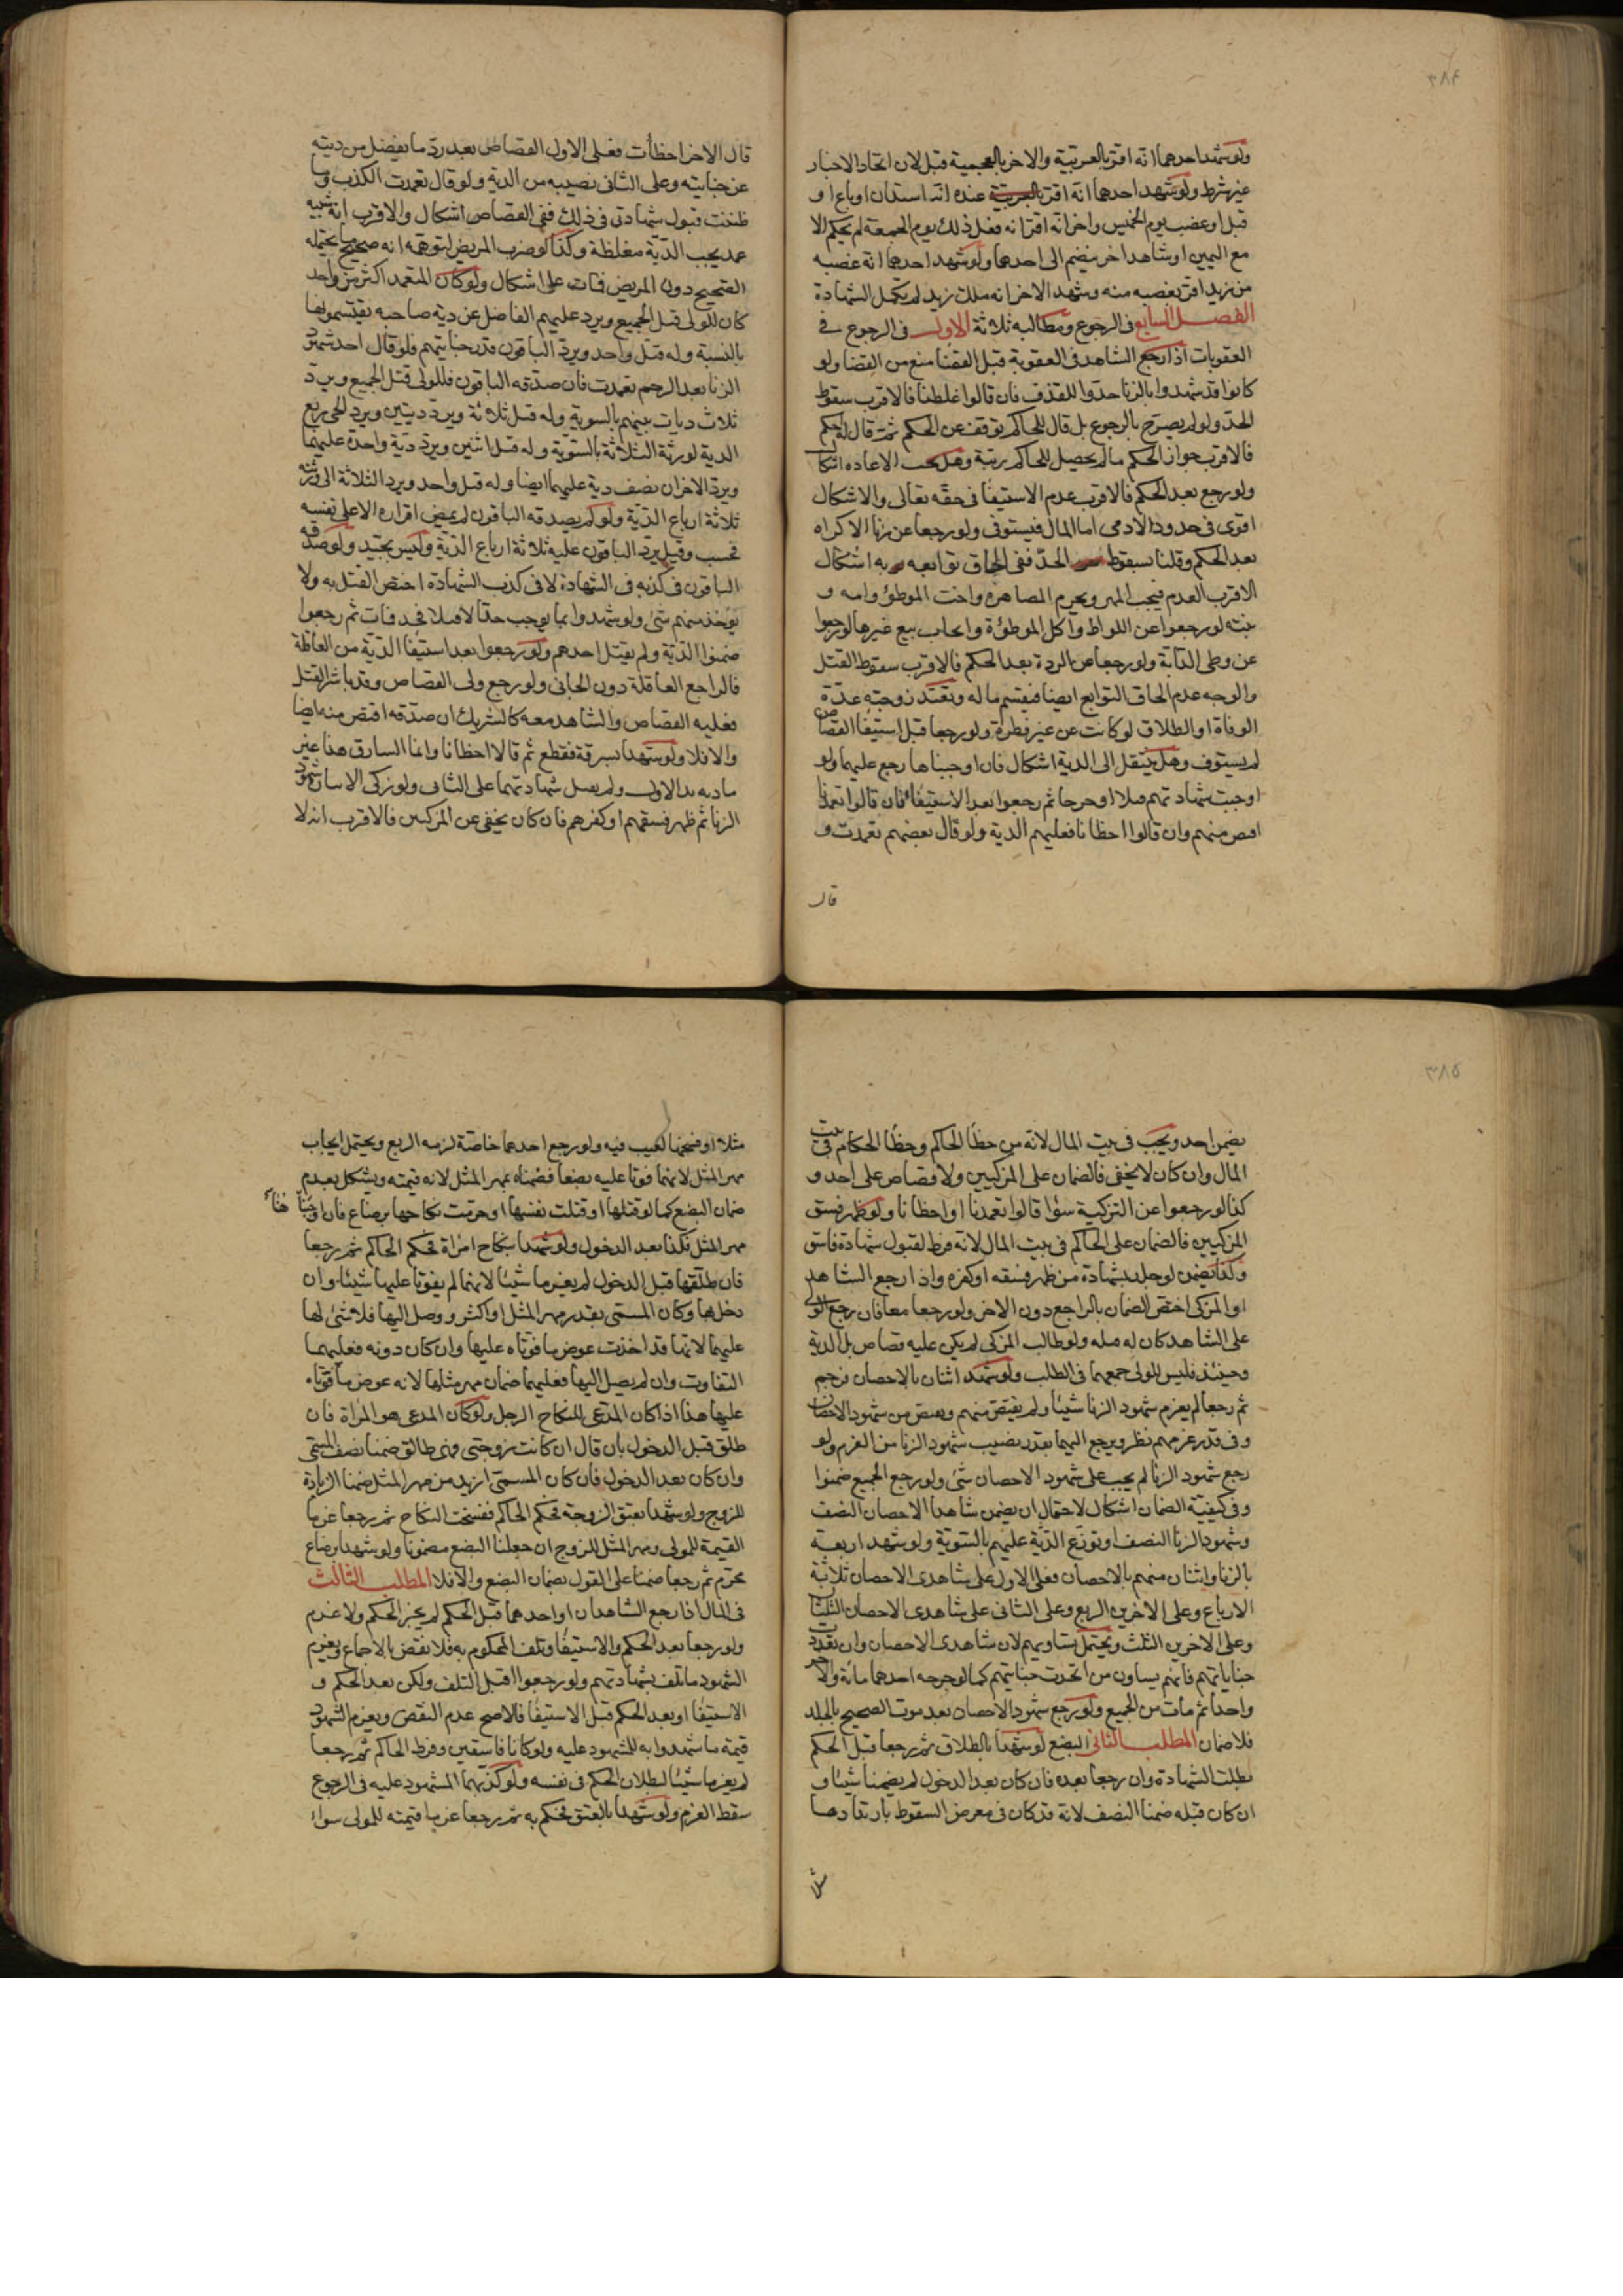 ٣٨٤
ولو شهد احدهما انه اقر بالعربية والاخر بالعجمية قبل لان اتحاد الاخبار
غير شرط ولو شهد احدهما انه اقر بالعربية عنده انه استدان او باع او
قبل او غصب يوم الخميس واخر انه اقر انه فعل ذلك يوم الجمعة لم يحكم الا
مع اليمين او شاهد اخر ينضم الى احدهما ولو شهد احدهما انه غصبه
من زيد او اقر بغصبه منه وشهد الاخر انه ملك زيد لم تكمل الشهادة
الفصل السابع فى الرجوع ومطالبه ثلاثة الاول فى الرجوع فى
العقوبات اذا رجع الشاهد فى العقوبة قبل القضا منع من القضا ولو
كانوا قد شهدوا بالزنا حدوا للقذف فان قالوا غلطنا فالاقرب سقوط
الحد ولو لم يصرح بالرجوع بل قال للحاكم توقف عن الحكم ثم قال له احكم
فالاقرب جواز الحكم ما لم يحصل للحاكم ريبة وهل تجب الاعاده اشكال
ولو رجع بعد الحكم فالاقرب عدم الاستيفا فى حقه تعالى والاشكال
اقوى فى حدود الادمى اما المال فيستوفى ولو رجعا عن زنا الاكراه
بعد الحكم وقلنا بسقوط الحد ففى الحاق توابعه به اشكال
الاقرب العدم فيجب المهر ويحرم المصاهرة واخت الموطؤ وامه و
بنته لو رجعوا عن اللواط واكل الموطؤة وايجاب بيع غيرها لو رجعوا
عن وطى الدابة ولو رجعا عن الردة بعد الحكم فالاقرب سقوط القتل
والوجه عدم الحاق التوابع ايضا فيقسم ماله وتعتد زوجته عدة
الوفاة او الطلاق لو كانت عن غير فطرة ولو رجعا قبل استيفا القصاص
لم يستوف وهل ينتقل الى الدية اشكال فان اوجبناها رجع عليهما ولو
اوجبت شهادتهم قتلا او جرحا ثم رجعوا بعد الاستيفا فان قالوا تعمدنا
اقتص منهم وان قالوا اخطانا فعليهم الدية ولو قال بعضهم تعمدت و
قال
قال الاخر اخطأت فعلى الاول القصاص بعد رد ما يفضل من ديته
عن جنايته وعلى الثانى نصيبه من الدية ولو قال تعمدت الكذب وما
ظننت قبول شهادتى فى ذلك ففى القصاص اشكال والاقرب انه شبيه
عمد يجب الدية مغلظة وكذا لو ضرب المريض لتوهمه انه صحيح ما يحتمله
الصحيح دون المريض فمات على اشكال ولو كان المتعمد اكثر من واحد
كان للولى قتل الجميع ويرد عليهم الفاضل عن دية صاحبه يقتسمونها
بالنسبة وله قتل واحد ويرد الباقون قدر جنايتهم فلو قال احد شهود
الزنا بعد الرجم تعمدت فان صدقه الباقون فللولى قتل الجميع ويرد
ثلاث ديات بينهم بالسوية وله قتل ثلاثة ويرد ديتين ويرد الحى ربع
الدية لورثة الثلاثة بالسوية وله قتل اثنين ويرد دية واحدة عليهما
ويرد الاخران نصف دية عليهما ايضا وله قتل واحد ويرد الثلاثة الى ورثته
ثلاثة ارباع الدية ولو لم يصدقه الباقون لم يمض اقراره الا على نفسه
فحسب وقيل يرد الباقون عليه ثلاثة ارباع الدية وليس بجيد ولو صدقه
الباقون فى كذبه فى الشهادة لا فى كذب الشهادة اختص القتل به ولا
يؤخذ منهم شئ ولو شهدوا بما يوجب حدا لا قتلا فحد فمات ثم رجعوا
ضمنوا الدية ولم يقتل احدهم ولو رجعوا بعد استيفا الدية من العاقلة
فالراجع العاقلة دون الجانى ولو رجع ولى القصاص وقد باشر القتل
فعليه القصاص والشاهد معه كالشريك ان صدقه اقتص منه ايضا
والا فلا ولو شهدا بسرقة فقطع ثم قالا اخطانا وانما السارق هذا غير
ما ديه يد الاول ولم يقبل شهادتهما على الثانى ولو زكى الاسان شهود
الزنا ثم ظهر فسقهم او كفرهم فان كان يخفى عن المزكيين فالاقرب انه لا
٣٨٥
يضمن احد ويجب فى بيت المال لانه من خطأ الحاكم وخطأ الحكام فى بيت
المال وان كان لا يخفى فالضمان على المزكيين ولا قصاص على احد و
كذا لو رجعوا عن التزكية سواء قالوا تعمدنا او اخطانا ولو ظهر فسق
المزكيين فالضمان على الحاكم فى بيت المال لانه فرط لقبول شهادة فاسق
وكذا يضمن لو جلد بشهادة من ظهر فسقه او كفره واذا رجع الشاهد
او المزكى اختص الضمان بالراجع دون الاخر ولو رجعا معا فان رجع الولى
على الشاهد كان له قتله ولو طالب المزكى لم يكن عليه قصاص بل الدية
وحينئذ فليس للولى جمعهما فى الطلب ولو شهد اثنان بالاحصان فرجم
ثم رجعا لم يغرم شهود الزنا شيئا ولم يقتص منهم ويقتص من شهود الاحصان
وفى قدر غرمهم نظر ويرجع اليهما بقدر نصيب شهود الزنا من الغرم ولو
رجع شهود الزنا لم يجب على شهود الاحصان شئ ولو رجع الجميع ضمنوا
وفى كيفية الضمان اشكال لاحتمال ان يضمن شاهدا الاحصان النصف
وشهود الزنا النصف او توزع الدية عليهم بالسوية ولو شهد اربعة
بالزنا واثنان منهم بالاحصان فعلى الاول على شاهدى الاحصان ثلاثة
الارباع وعلى الاخرين الربع وعلى الثانى على شاهدى الاحصان الثلثان
وعلى الاخرين الثلث ويحتمل تساويهم لان شاهدى الاحصان وان تعددت
جناياتهم فانهم يساون من اتحدت جنايتهم كما لو جرحه احدهما مائة والاخر
واحدا ثم مات من الجميع ولو رجع شهود الاحصان بعد موت الصحيح بالجلد
فلا ضمان المطلب الثانى البضع لو شهدا بالطلاق ثم رجعا قبل الحكم
بطلت الشهادة وان رجعا بعده فان كان بعد الدخول لم يضمنا شيئا و
ان كان قبله ضمنا النصف لانه قد كان فى معرض السقوط بارتدادها
مثلا
مثلا او فسخها لعيب فيه ولو رجع احدهما خاصة لزمه الربع ويحتمل ايجاب
مهر المثل لانهما فوتا عليه بضعا فضمناه بمهر المثل لانه قيمته ويشكل بعدم
ضمان البضع كما لو قتلها او قتلت نفسها او حرمت نكاحها برضاع فان اوجبنا هنا
مهر المثل فكذا بعد الدخول ولو شهدا بنكاح امراة فحكم الحاكم ثم رجعا
فان طلقها قبل الدخول لم يغرما شيئا لانهما لم يفوتا عليها شيئا وان
دخل بها وكان المسمى بقدر مهر المثل او اكثر ووصل اليها فلا شئ لها
عليهما لانها قد اخذت عوض ما فوتاه عليها وان كان دونه فعليهما
التفاوت وان لم يصل اليها فعليهما ضمان مهر مثلها لانه عوض ما فوتاه
عليها هذا اذا كان المدعى للنكاح الرجل ولو كان المدعى هو المراة فان
طلق قبل الدخول بان قال ان كانت زوجتى فهى طالق ضمنا نصف المسمى
وان كان بعد الدخول فان كان المسمى ازيد من مهر المثل ضمنا الزيادة
للزوج ولو شهدا بعتق الزوجة فحكم الحاكم ففسخت النكاح ثم رجعا غرما
القيمة للمولى ومهر المثل للزوج ان جعلنا البضع مضمونا ولو شهدا برضاع
محرم ثم رجعا ضمنا على القول بضمان البضع والا فلا المطلب الثالث
فى المال اذا رجع الشاهدان او احدهما قبل الحكم لم يجز الحكم ولا غرم
ولو رجعا بعد الحكم والاستيفا وتلف المحكوم به فلا نقض بالاجماع ويغرم
الشهود ما تلف بشهادتهم ولو رجعوا قبل التلف ولكن بعد الحكم و
الاستيفا او بعد الحكم قبل الاستيفا فالاصح عدم النقض ويغرم الشهود
قيمة ما شهدوا به للمشهود عليه ولو كانا فاسقين وفرط الحاكم ثم رجعا
لم يغرما شيئا لبطلان الحكم فى نفسه ولو كذبهما المشهود عليه فى الرجوع
سقط الغرم ولو شهدا بالعتق فحكم به ثم رجعا غرما قيمته للمولى سواء